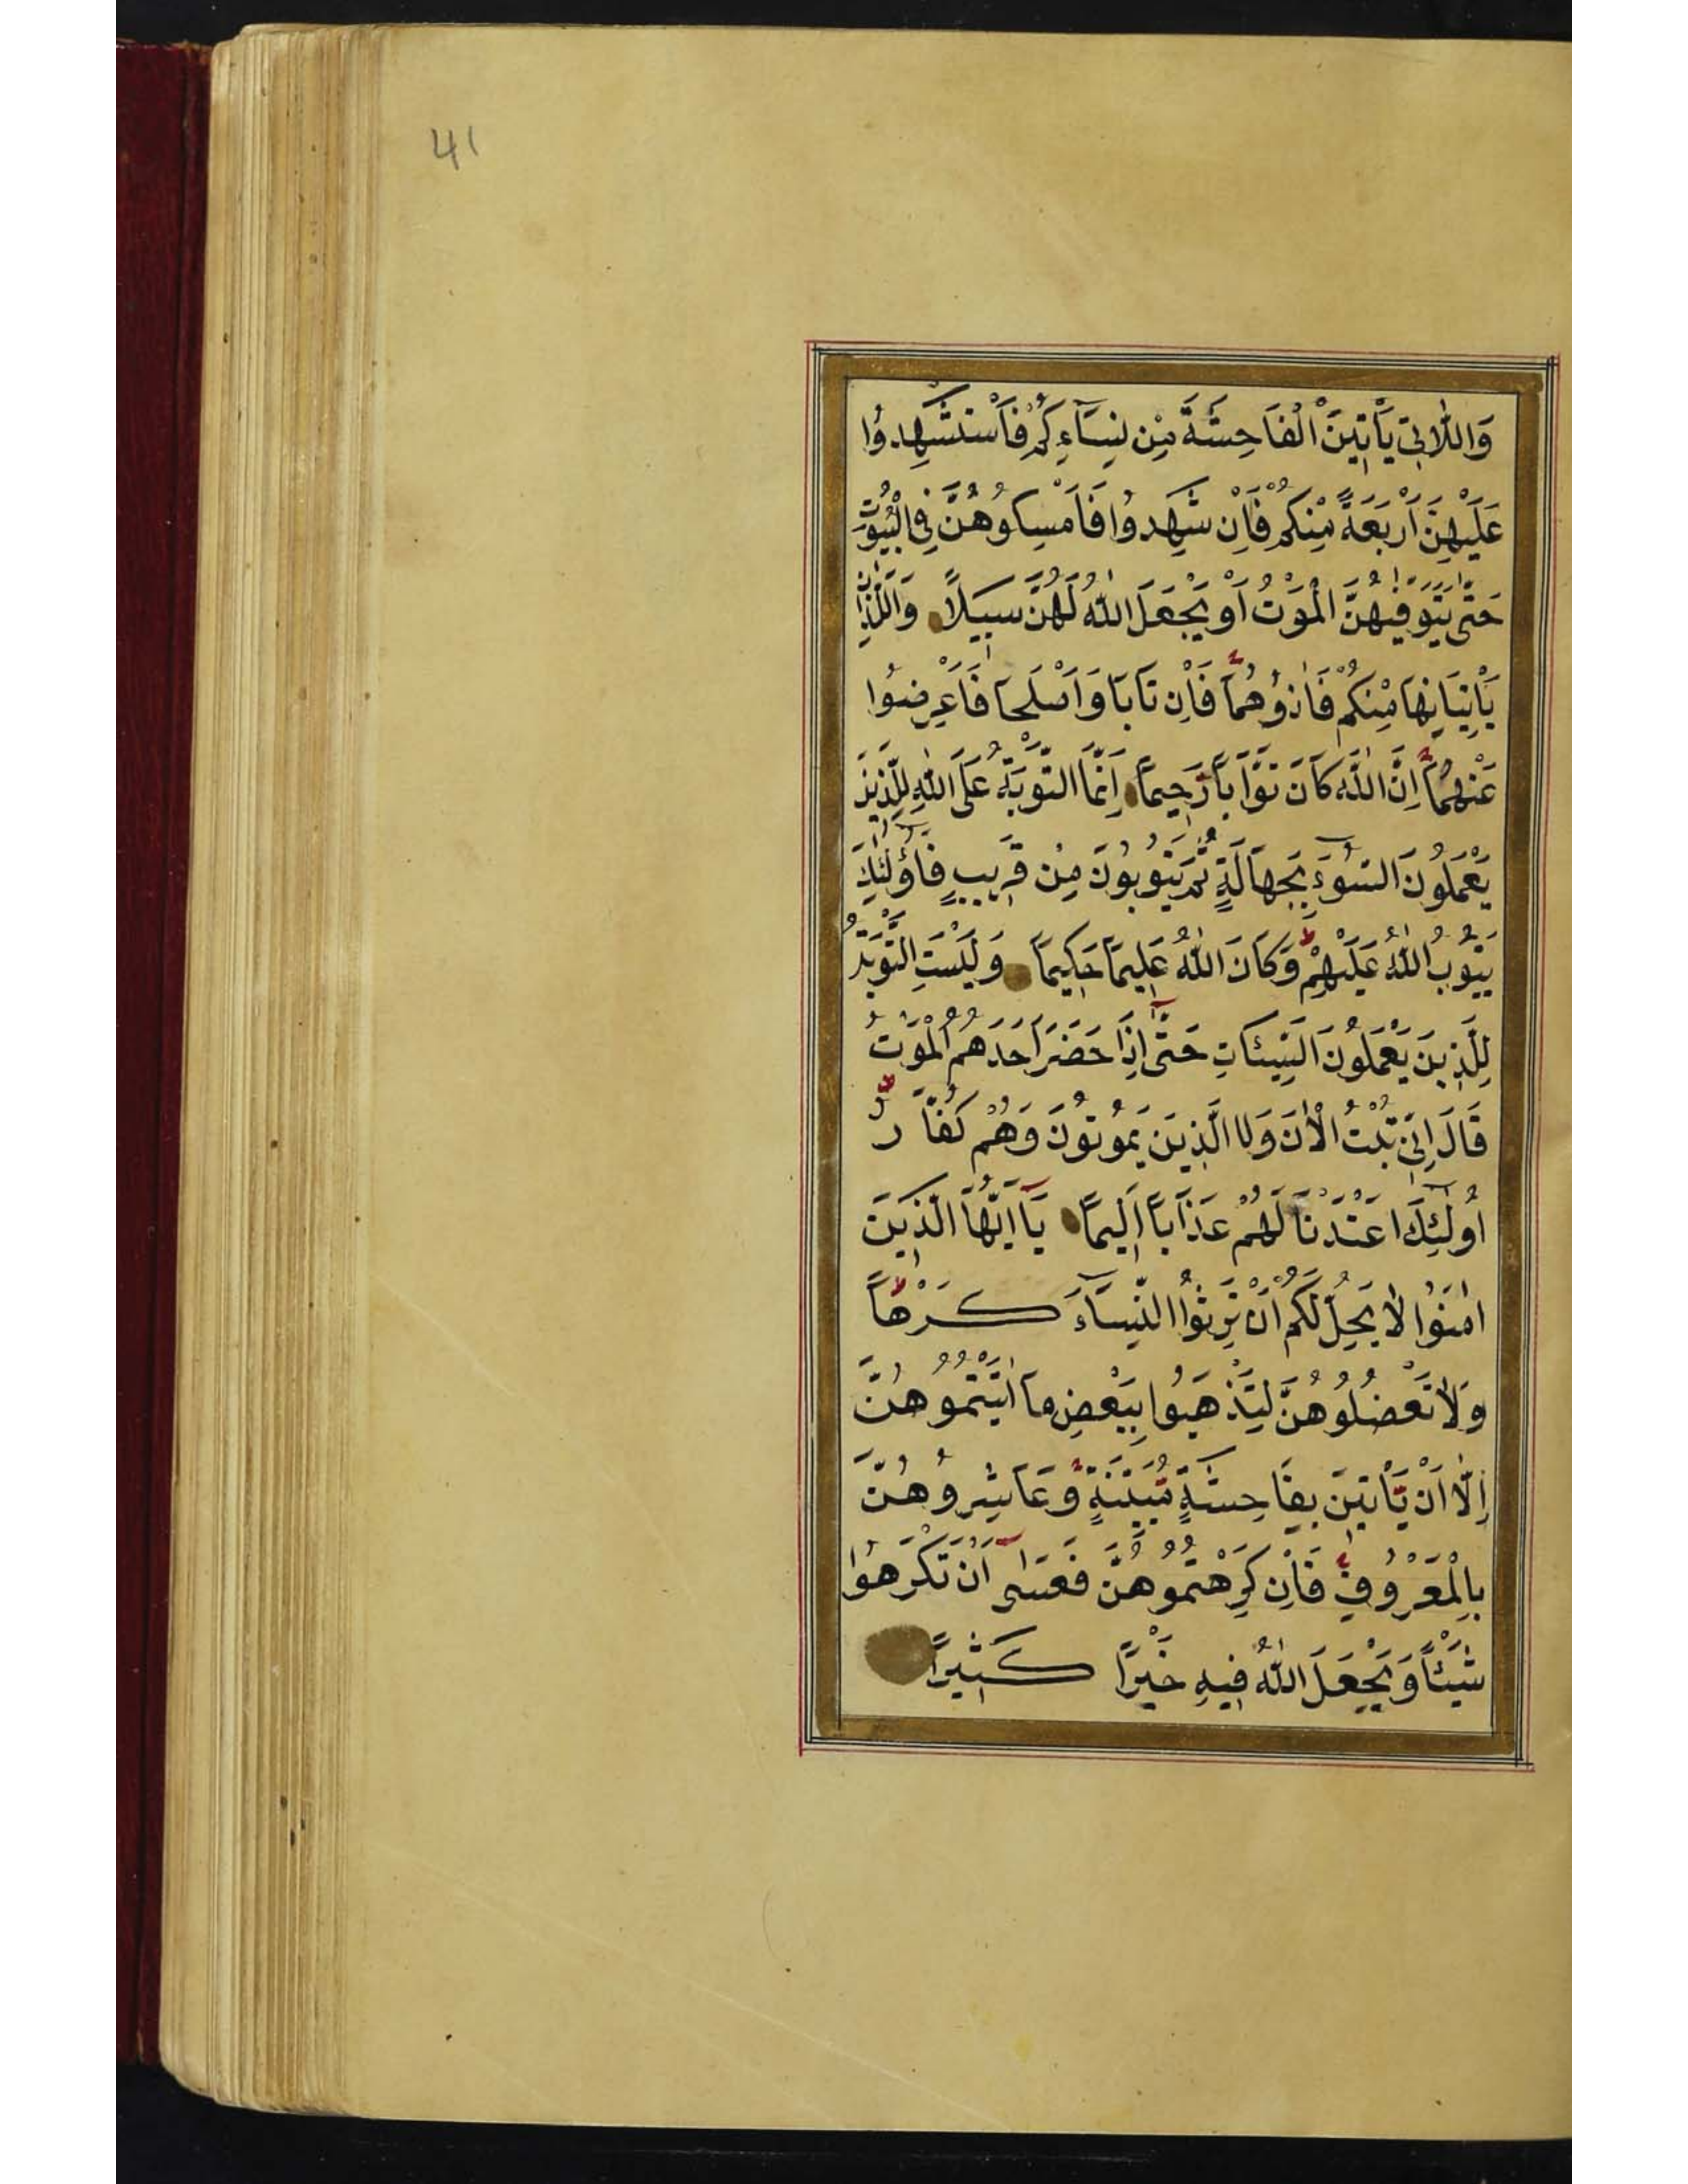 41
وَاللَّاتِي يَأْتِينَ الْفَاحِشَةَ مِنْ نِسَاءِكُمْ فَاسْتَشْهِدُوا
عَلَيْهِنَّ أَرْبَعَةً مِنْكُمْ فَإِنْ شَهِدُوا فَامْسِكُوهُنَّ فِي الْبُيُوتِ
حَتَّى يَتَوَفّٰيهُنَّ الْمَوْتُ أَوْ يَجْعَلَ اللّٰهُ لَهُنَّ سَبِيلًا وَاللَّذَانِ
يَأْتِيَانِهَا مِنْكُمْ فَاٰذُوهُمَا فَإِنْ تَابَا وَاَصْلَحَا فَاَعْرِضُوا
عَنْهُمَا اِنَّ اللّٰهَ كَانَ تَوَّابًا رَحِيمًا اِنَّمَا التَّوْبَةُ عَلَى اللّٰهِ لِلَّذِينَ
يَعْمَلُونَ السُّوءَ بِجَهَالَةٍ ثُمَّ يَتُوبُونَ مِنْ قَرِيبٍ فَاُولٰئِكَ
يَتُوبُ اللّٰهُ عَلَيْهِمْ وَكَانَ اللّٰهُ عَلِيمًا حَكِيمًا وَلَيْسَتِ التَّوْبَةُ
لِلَّذِينَ يَعْمَلُونَ السَّيِّئَاتِ حَتَّى اِذَا حَضَرَ اَحَدَهُمُ الْمَوْتُ
قَالَ اِنِّي تُبْتُ الْاٰنَ وَلَا الَّذِينَ يَمُوتُونَ وَهُمْ كُفَّارٌ
اُولٰئِكَ اَعْتَدْنَا لَهُمْ عَذَابًا اَلِيمًا يَا اَيُّهَا الَّذِينَ
اٰمَنُوا لَا يَحِلُّ لَكُمْ اَنْ تَرِثُوا النِّسَاءَ كَرْهًا
وَلَا تَعْضُلُوهُنَّ لِتَذْهَبُوا بِبَعْضِ مَا اٰتَيْتُمُوهُنَّ
اِلَّا اَنْ يَأْتِينَ بِفَاحِشَةٍ مُبَيِّنَةٍ وَعَاشِرُوهُنَّ
بِالْمَعْرُوفِ فَاِنْ كَرِهْتُمُوهُنَّ فَعَسٰى اَنْ تَكْرَهُوا
شَيْئًا وَيَجْعَلَ اللّٰهُ فِيهِ خَيْرًا كَثِيرًا